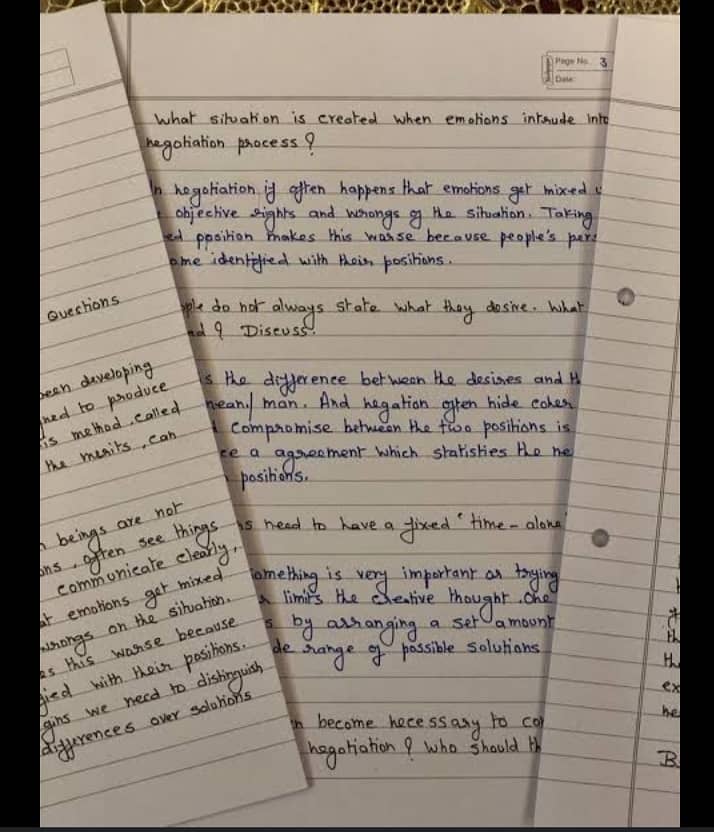 Page No. 3
Date:
What situation is created when emotions intrude into
negotiation process ?
In negotiation if often happens that emotions get mixed
objective rights and wrongs of the situation. Taking
position makes this worse because people's
identified with their positions.
do not always state what they desire. What
? Discuss.
the difference between the desires and
mean/ man. And negation often hide
compromise between the two positions is
a agreement which statisties the
positions.
need to have a fixed "time - alone
something is very important as trying
limits the creative thought. One
by arranging a set amount
range of possible solutions
become necessary to
negotiation ? who should
Questions
been developing
to produce
is method called
the merits, can
beings are not
often see things
communicate clearly,
emotions get mixed
wrongs on the situation.
this worse because
with their positions.
we need to distinguish
differences over solutions
ex
he
B